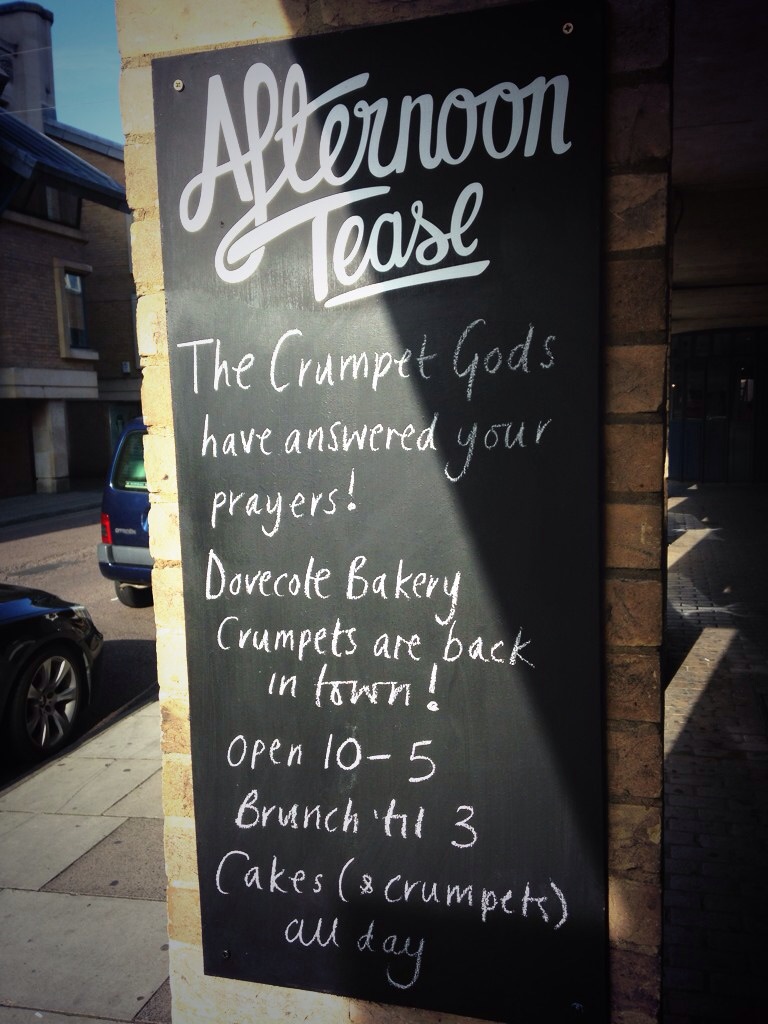 Afternoon
Tease
The Crumpet Gods
have answered your
prayers!
Dovecote Bakery
Crumpets are back
in town!
Open 10-5
Brunch 'til 3
Cakes (& crumpets)
all day